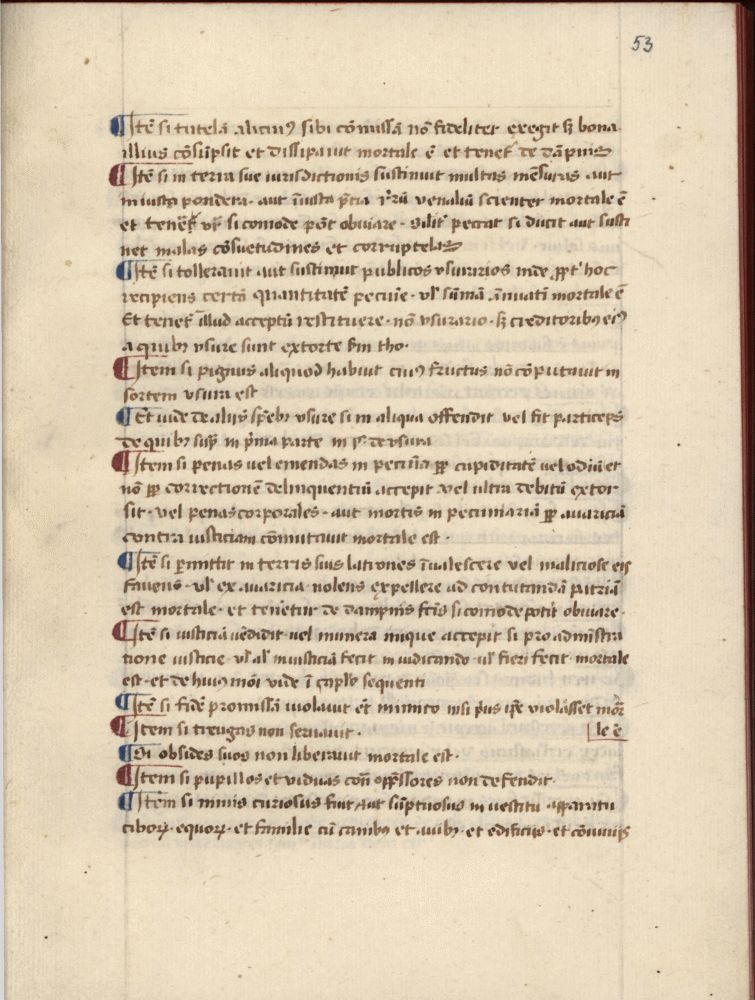 53
¶ Itē si tutelā alicuiꝰ sibi cōmissā nō fideliter exegit sꝫ bona
illius cōsūpsit et dissipauit mortale ē et tenetʳ de dāpnis
¶ Itē si in terra sue iurisdictionis sustinuit multas mēsuras aut
iniusta pondera · aut īiusta p̄cia rerū venaliū scienter mortale ē
et tenetʳ si comode pōt obuiare · Silitʳ peccat si ducit aut susti
net malas cōsuetudines et corruptelas
¶ Itē si tollerauit aut sustinuit publicos vsurarios inde ꝓpt' hoc
recipiens certā quantitatē pecuīe · vl' sūmā ānuatī mortale ē
Et tenetʳ illud acceptū restituere · nō vsurario · sꝫ creditoribꝫ eiꝰ
a quibꝫ vsure sunt extorte scdm tho ·
¶ Item si pignus aliquod habuit cuiꝰ fructus nō cōputauit in
sortem vsura est
¶ Et uide de aliis sp̄ebꝫ vsure si in aliqua offendit vel fit particeps
de quibꝫ suꝑ in p̄ma parte in de vsura
¶ Item si penas uel emendas in pecūia ꝓp cupiditatē uel odiū et
nō ꝓp correctionē delinquentiū accepit vel ultra debitū extor
sit · vel penas corporales · aut mortis in pecuniariā ꝓp auariciā
contra iusticiam cōmutauit mortale est ·
¶ Itē si ꝑmittit in terris suis latrones īualescere vel maliciose eis
fauens · vl' ex auaricia nolens expellere ad contutandā patriā
est mortale · et tenetur de dampnis fc̄is si comode potit obuiare ·
¶ Itē si iusticiā uēdidit · uel munera inique accepit si pro admīstra
tione iusticie · vl' al' iniusticiā fecit in iudicando · ul' fieri fecit · mortale
est · et de huiꝰ mōi vide ī caplo sequenti
¶ Itē si fidē promissā uiolauit et inimico nisi pⁱus ip̄e violasset mor̄
¶ Item si treugas non seruauit · le ē
¶ Si obsides suos non liberauit mortale est ·
¶ Item si pupillos et viduas con̄ opp̄ssores non defendit ·
¶ Item si nimis curiosus fuit aut sūptuosus in uestitu apparatu
ciboꝝ · equoꝝ · et familie cū canibꝫ et auibꝫ · et edificiis · et cōuiuiis